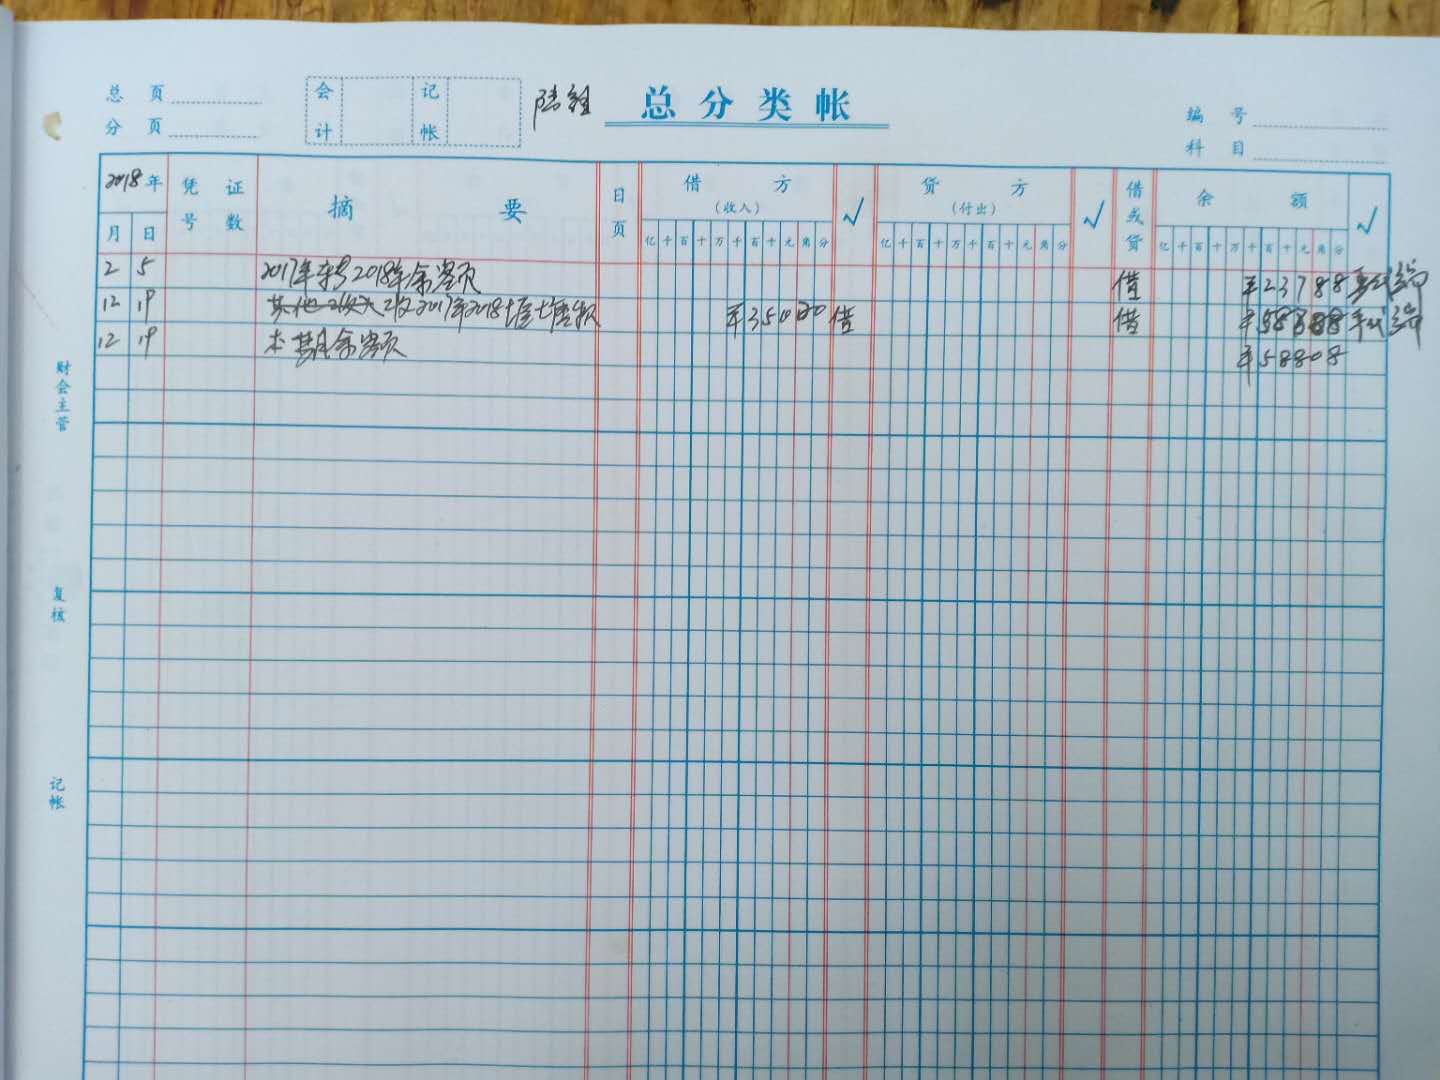 总页
分页
会计
记帐
总分类帐
编号
科目
2018年
凭证
号数
摘要
日页
借方
(收入)
√
贷方
(付出)
√
借或贷
余额
√
月 日
亿千百十万千百十元角分
亿千百十万千百十元角分
亿千百十万千百十元角分
2 5 2017年转2018年余额 借 ¥23788
12 19 其他收入收2017年2018 ¥35000 借 借
12 19 本期余额 ¥58808
财会主管
复核
记帐